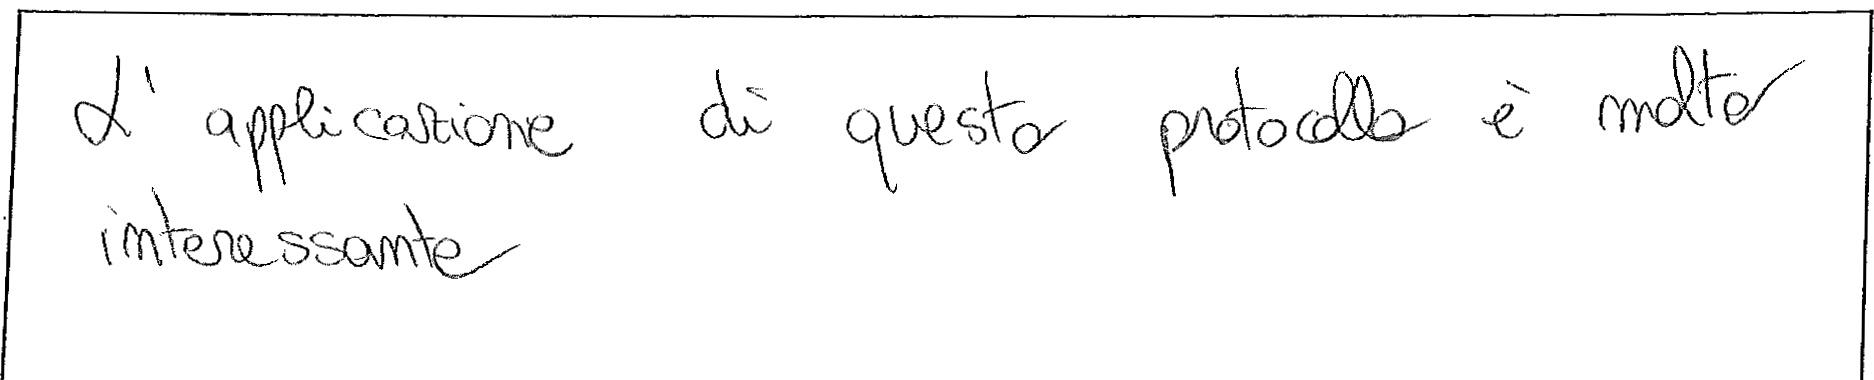 L'applicazione di questo protocollo è molto
interessante